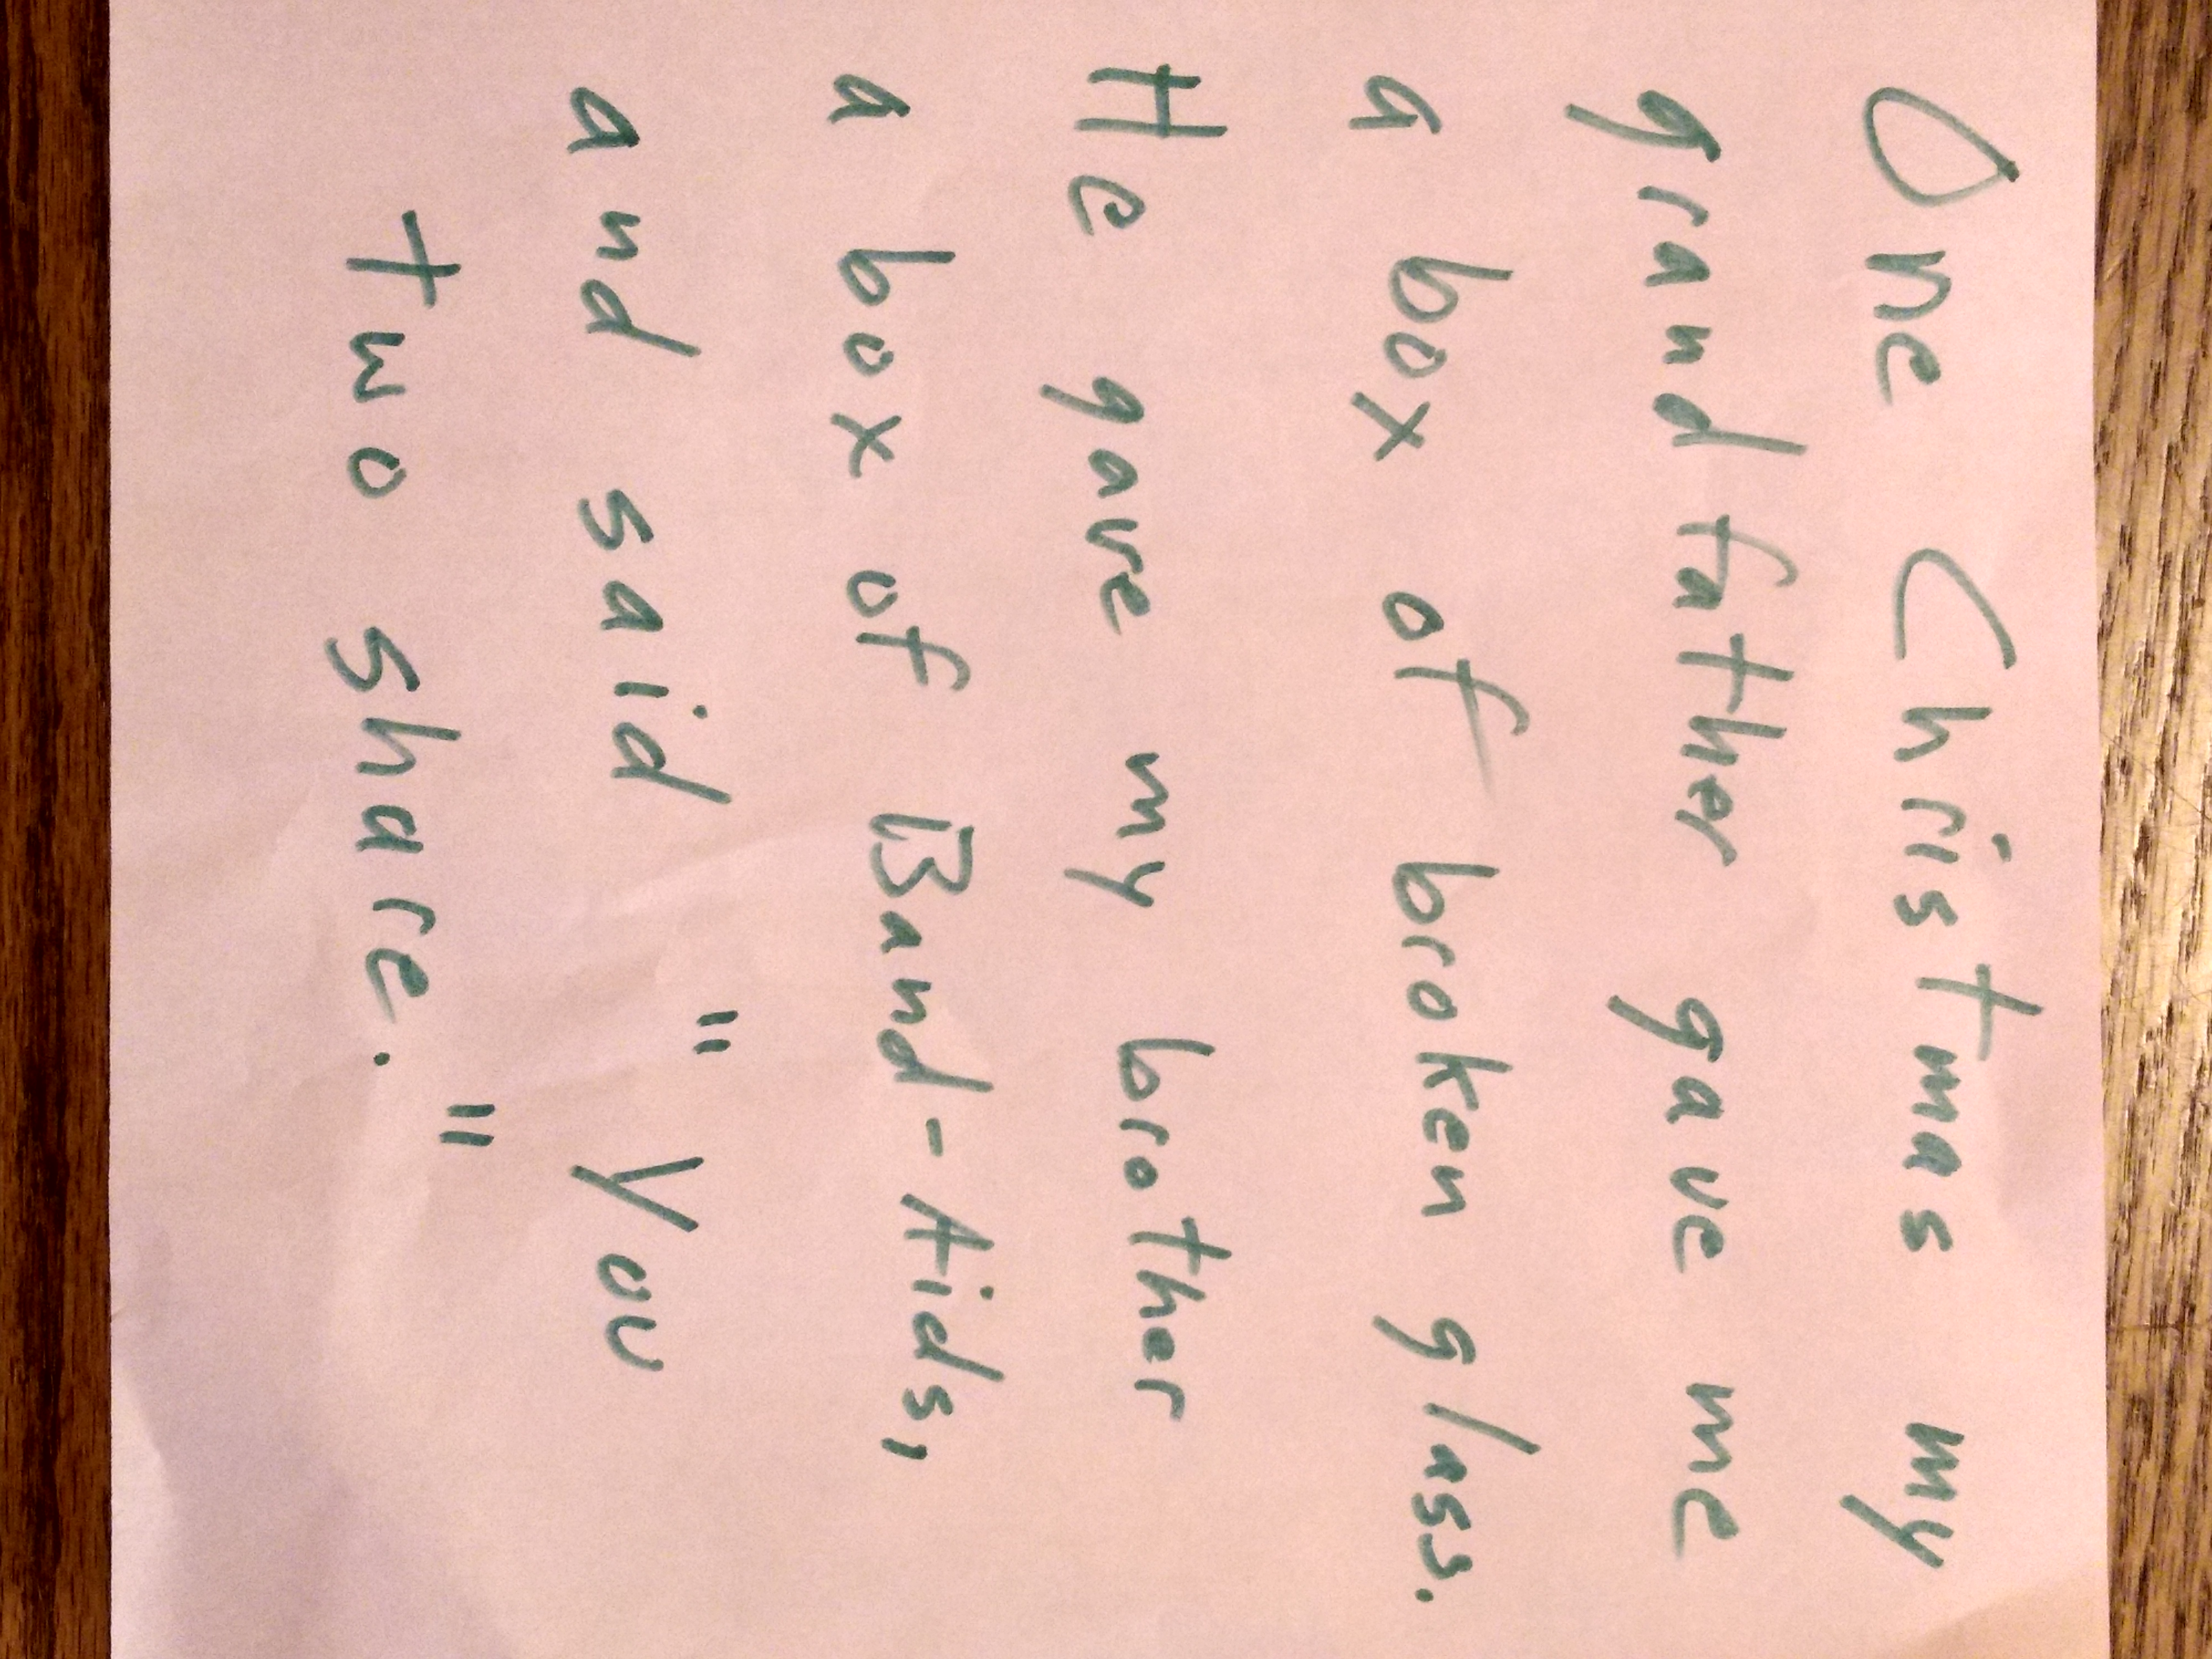 One Christmas my
grandfather gave me
a box of broken glass.
He gave my brother
a box of Band-Aids,
and said "You
two share."